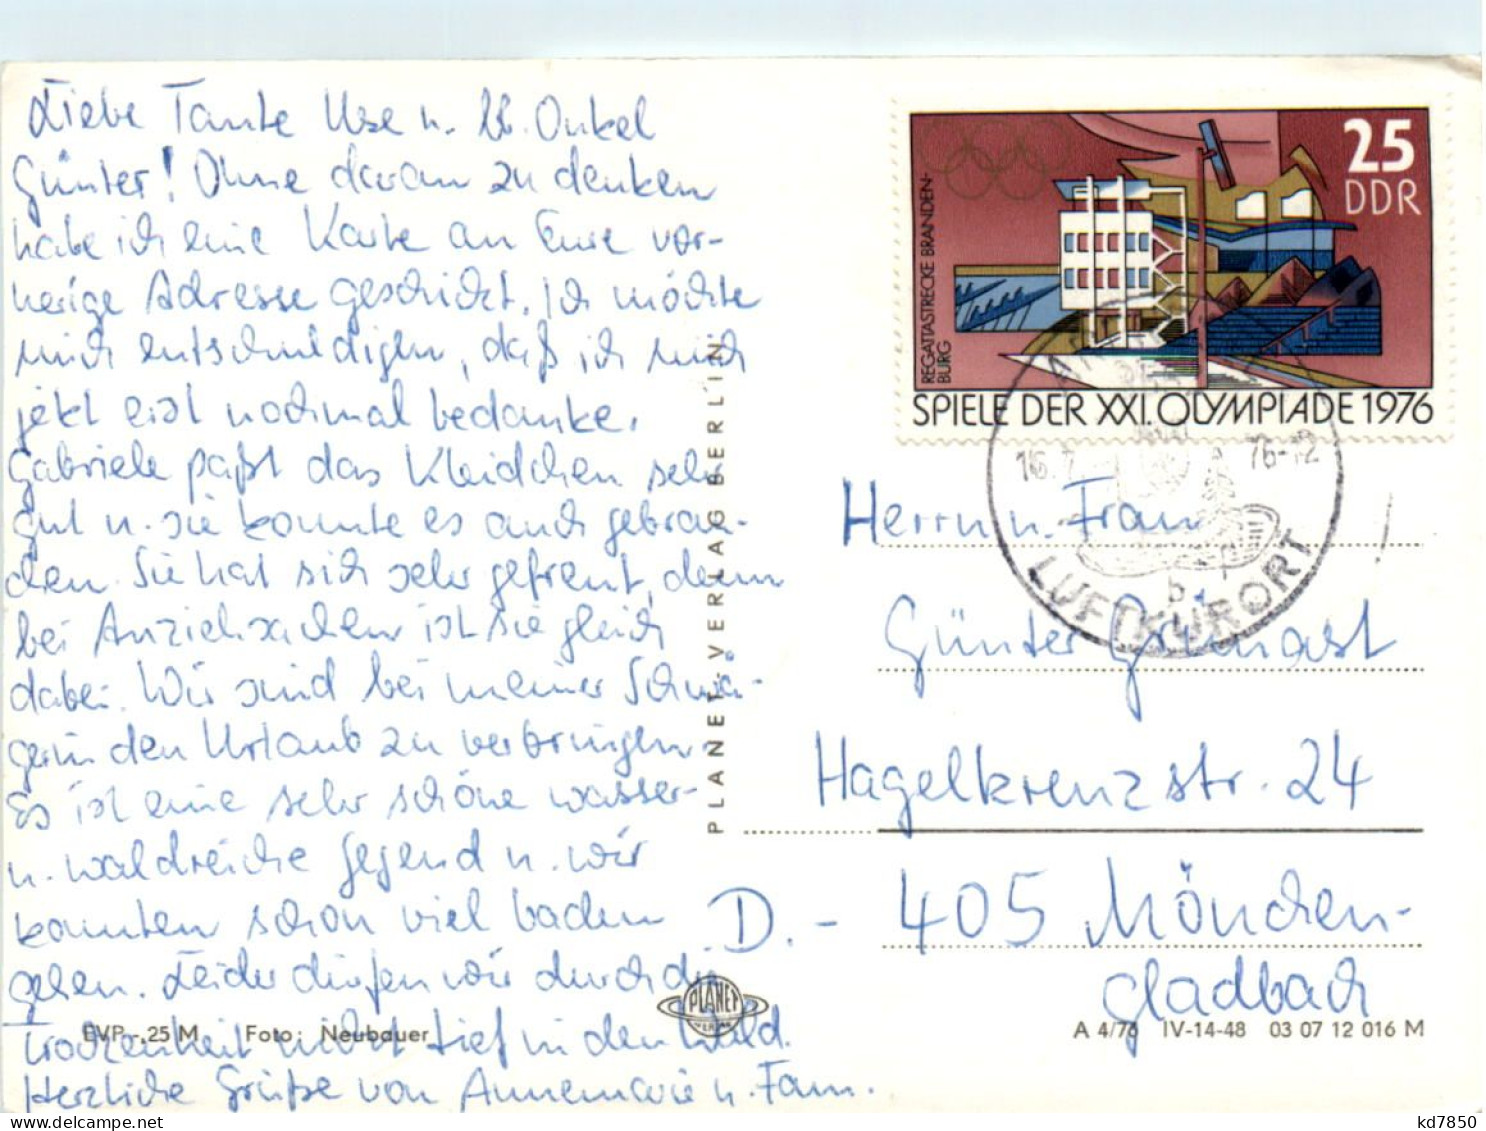 Liebe Tante Ilse u. lb. Onkel
Günter! Ohne daran zu denken
habe ich eine Karte an Eure vor-
herige Adresse geschickt. Ich möchte
mich entschuldigen, daß ich mich
jetzt erst nochmal bedanke.
Gabriele paßt das Kleidchen sehr
gut u. sie konnte es auch gebrau-
chen. Sie hat sich sehr gefreut, denn
bei Anziehsachen ist sie gleich
dabei. Wir sind bei meiner Schwä-
gerin den Urlaub zu verbringen.
Es ist eine sehr schöne wasser-
u. waldreiche Gegend u. wir
konnten schon viel baden
gehen. Leider dürfen wir durch die
Trockenheit nicht tief in den Wald.
Herzliche Grüße von Annemarie u. Fam.
EVP -,25 M Foto: Neubauer
PLANET-VERLAG BERLIN
PLANET
VERLAG
25
DDR
REGATTASTRECKE BRANDEN-
BURG
SPIELE DER XXI. OLYMPIADE 1976
16.7.76-12
b
LUFTKURORT
Herrn u. Frau
Günter
Hagelkreuzstr. 24
D.- 405 Mönchen-
gladbach
A 4/76 IV-14-48 03 07 12 016 M
kd7850